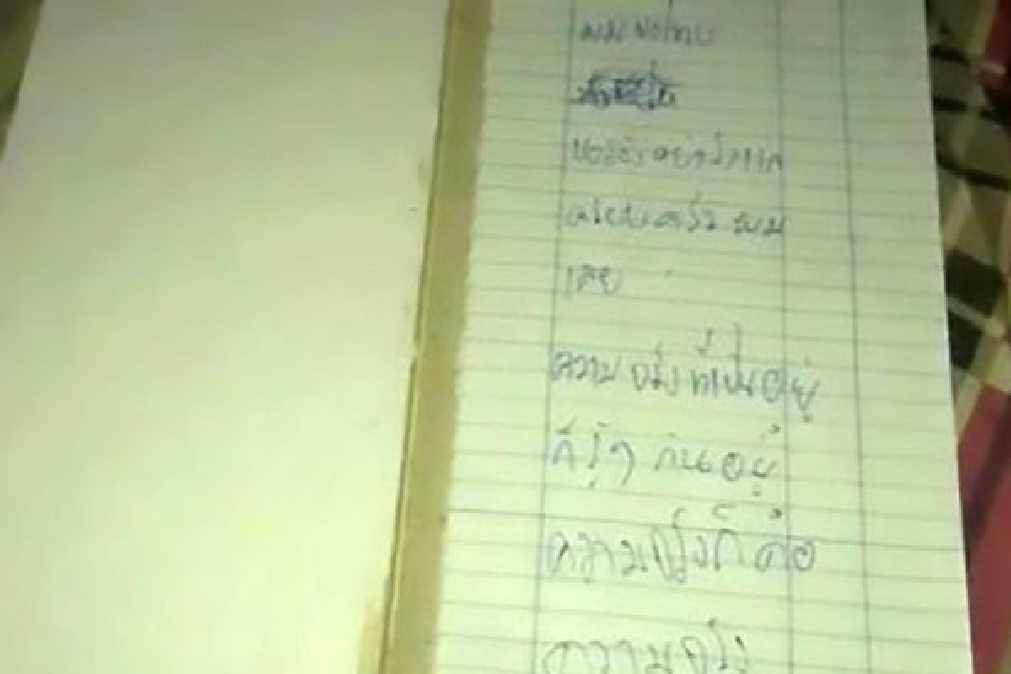 ผมขอโทษ
ขอร้องอย่าโกรธ
ครอบครัว ผม
เลย
ความ จริง ที่เป็นอยู่
ก็รู้ๆ กันอยู่
ความจริงก็ คือ
ความจริง